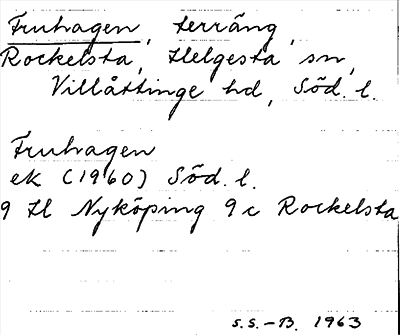 Fruhagen, terräng,
Rockelsta, Helgesta sn,
Villåttinge hd, Söd. l.
Fruhagen
ek (1960) Söd. l.
9 H Nyköping 9 c Rockelsta
S.S.-B. 1963